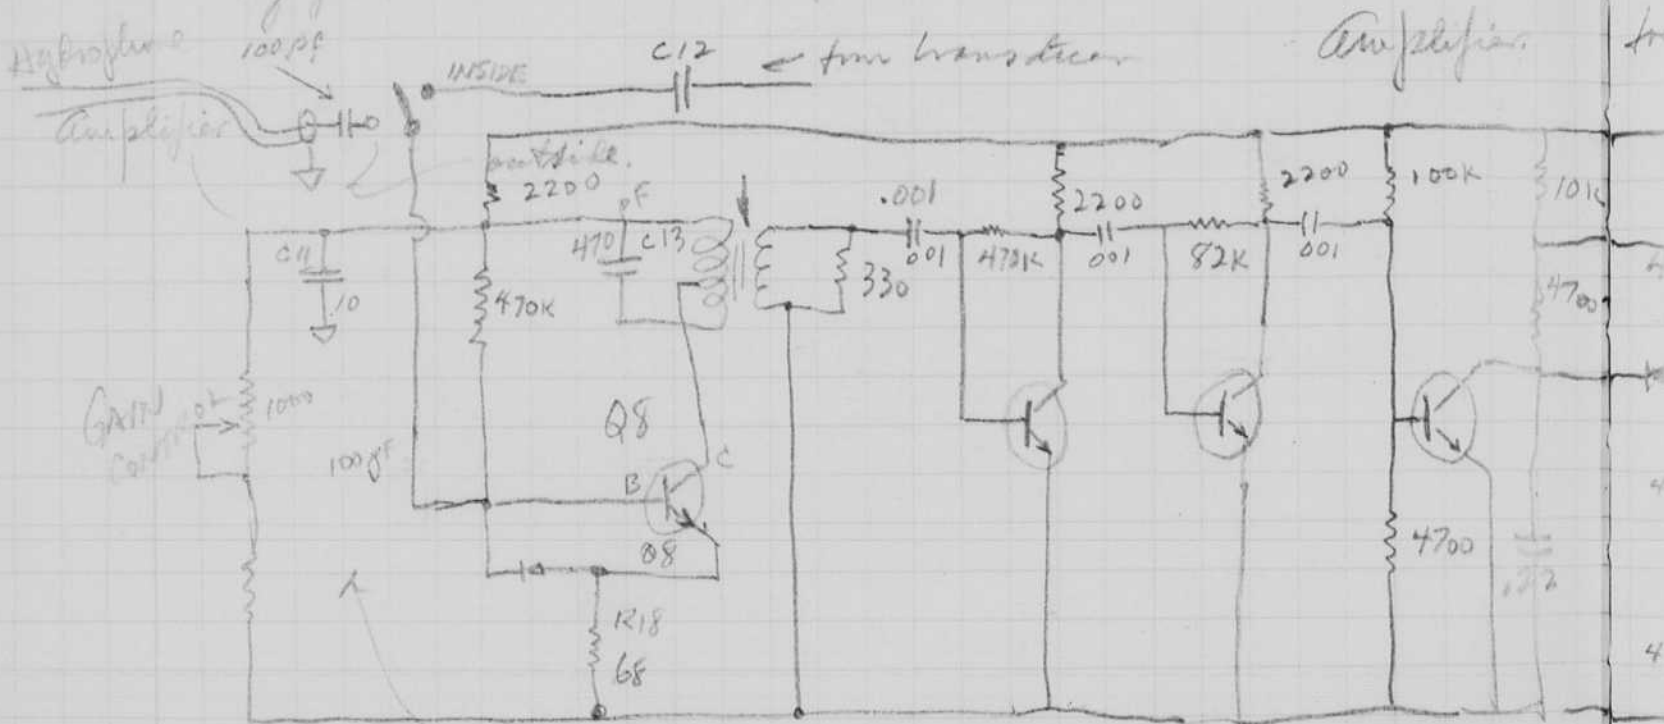 Hydrophone
100pf
INSIDE
C12
from transducer
Amplifier
Amplifier
outside.
2200
.001
2200
2200
100K
10K
PF
470
C13
C11
10
470K
330
001
470K
001
82K
001
4700
GAIN
CONTROL
1000
100pF
Q8
C
B
Q8
4700
.22
R18
68